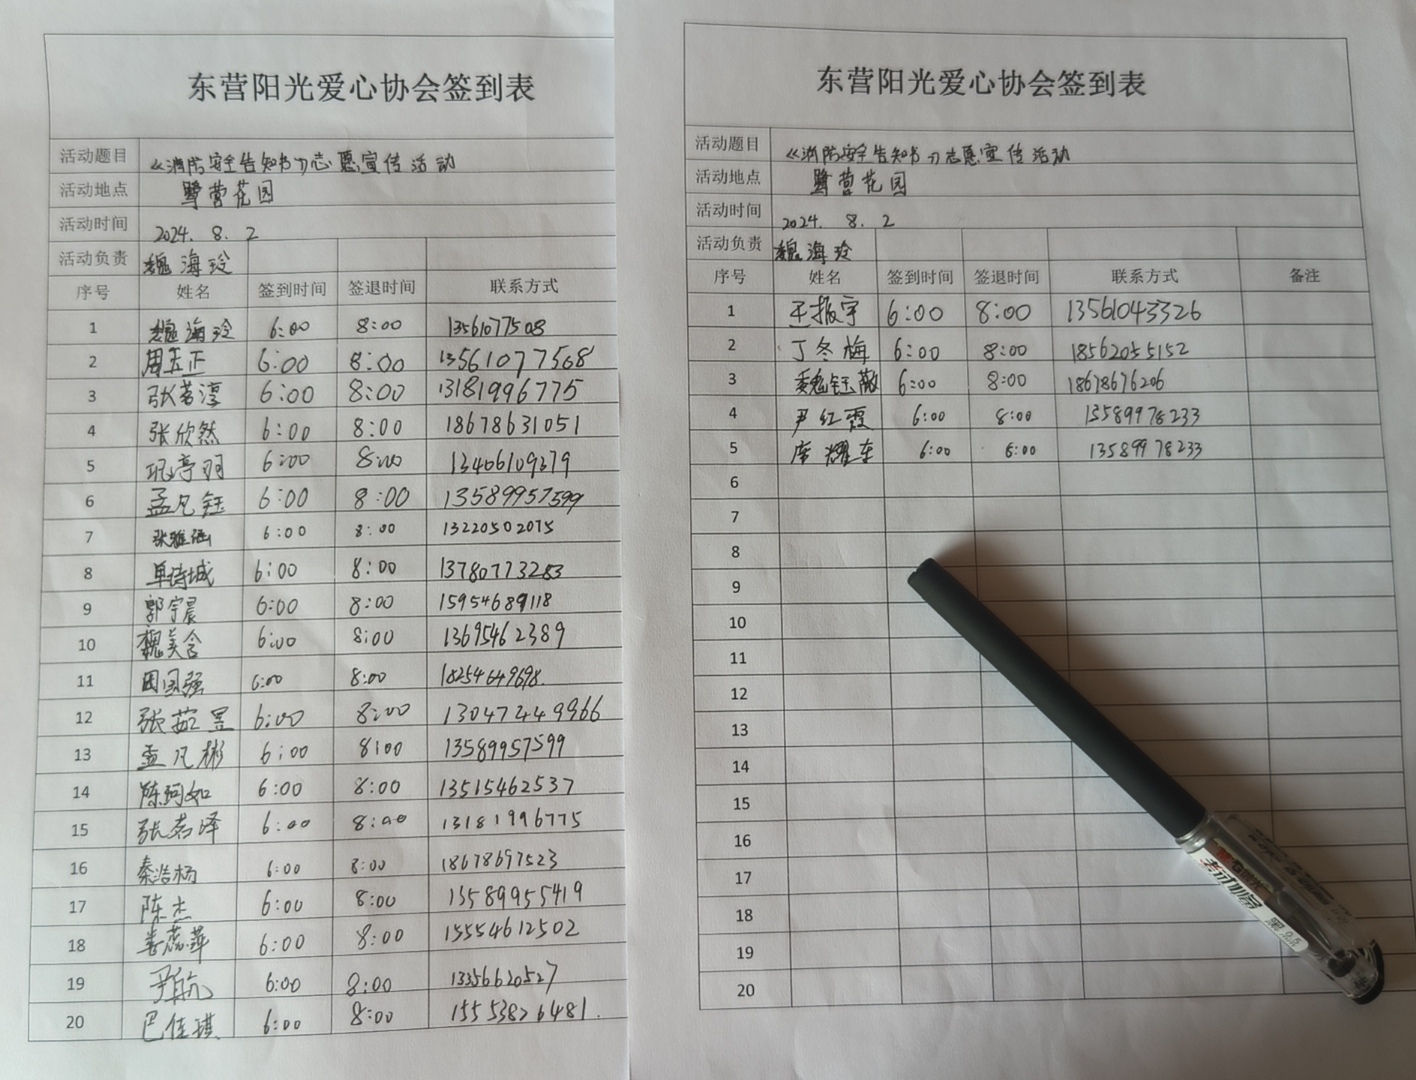 东营阳光爱心协会签到表
活动题目 《消防安全告知书》志愿宣传活动
活动地点 鹭营花园
活动时间 2024. 8. 2
活动负责 魏海玲
序号 姓名 签到时间 签退时间 联系方式
1 魏海玲 6:00 8:00 13561077508
2 周玉正 6:00 8:00 13561077568
3 张茗淳 6:00 8:00 13181996775
4 张欣然 6:00 8:00 18678631051
5 6:00 8:00 13406109379
6 孟凡钰 6:00 8:00 13589957599
7 张雅涵 6:00 8:00 13220502075
8 单诗城 6:00 8:00 13780773283
9 郭宇晨 6:00 8:00 15954689118
10 魏美含 6:00 8:00 13695462389
11 田国强 6:00 8:00 18254649698.
12 张茹昱 6:00 8:00 13047449966
13 孟凡彬 6:00 8:00 13589957599
14 陈珂如 6:00 8:00 13515462537
15 张茗泽 6:00 8:00 13181996775
16 秦浩杨 6:00 8:00 18678697523
17 陈杰 6:00 8:00 13589955419
18 姜蕊萍 6:00 8:00 15554612502
19 尹航 6:00 8:00 13356620527
20 巴佳琪 6:00 8:00 15553826481.
东营阳光爱心协会签到表
活动题目 《消防安全告知书》志愿宣传活动
活动地点 鹭营花园
活动时间 2024. 8. 2
活动负责 魏海玲
序号 姓名 签到时间 签退时间 联系方式 备注
1 王振宇 6:00 8:00 13561043326
2 丁冬梅 6:00 8:00 18562055152
3 魏钰薇 6:00 8:00 18678676206
4 尹红霞 6:00 8:00 13589978233
5 席耀东 6:00 8:00 13589978233
6
7
8
9
10
11
12
13
14
15
16
17
18
19
20
考试必备
黑 0.5